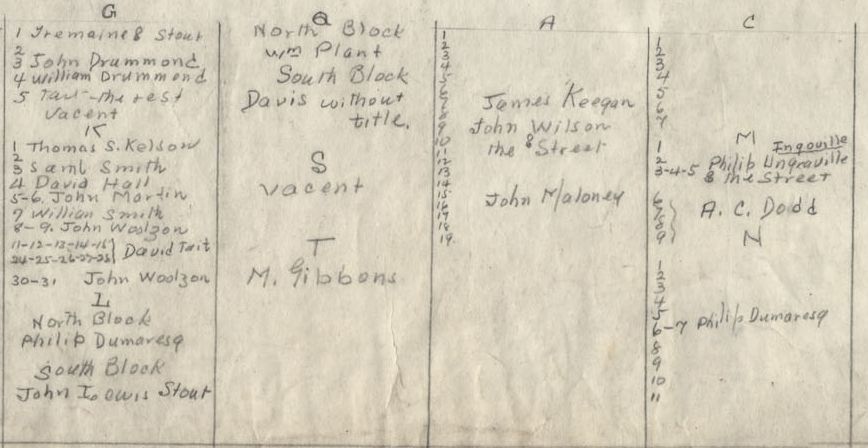 G
1 Tremaine & Stout
2
3 John Drummond
4 William Drummond
5 Tait - the rest
Vacent
K
1 Thomas S. Kelson
2
3 Saml Smith
4 David Hall
5-6. John Martin
7 William Smith
8-9. John Woolzon
11-12-13-14-15 } David Tait
24-25-26-27-28
30-31 John Woolzon
L
North Block
Philip Dumaresq
South Block
John Lowis Stout
Q
North Block
Wm Plant
South Block
Davis without
title.
S
Vacent
T
M. Gibbons
A
1
2
3
4
5
6
7 James Keegan
8
9 John Wilson
10 & the Street
11
12
13
14
15 John Maloney
16
17
18
19
C
1
2
3
4
5
6
7
M
1 Ingouille
2
3-4-5 Philip Ungraville
& the Street
6
7 } A. C. Dodd
8
9
N
1
2
3
4
5
6-7 Philip Dumaresq
8
9
10
11